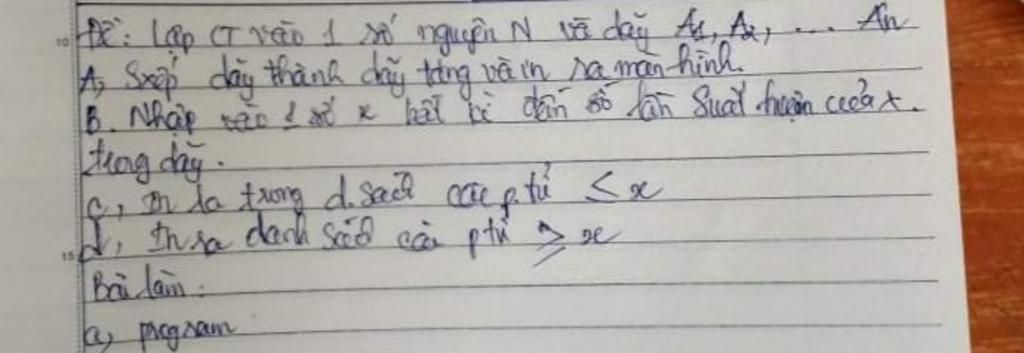 Đề: Lập CT vào 1 số nguyên N và dãy A1, A2, ... An
A, Sxếp dãy thành dãy tăng và in ra màn hình.
B. Nhập vào 1 số x bất kì đếm số lần suất hiện của x.
trong dãy.
c, In ra trong d.sách các p.tử ≤ x
d, In ra danh sách các ptử ≥ x
Bài làm:
a, program